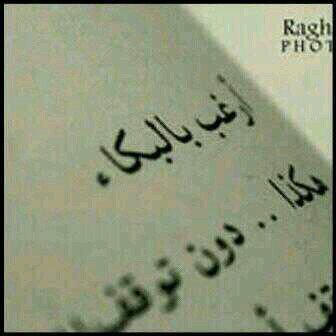 Ragh
PHOT
أرغب بالبكاء
هكذا .. دون توقف